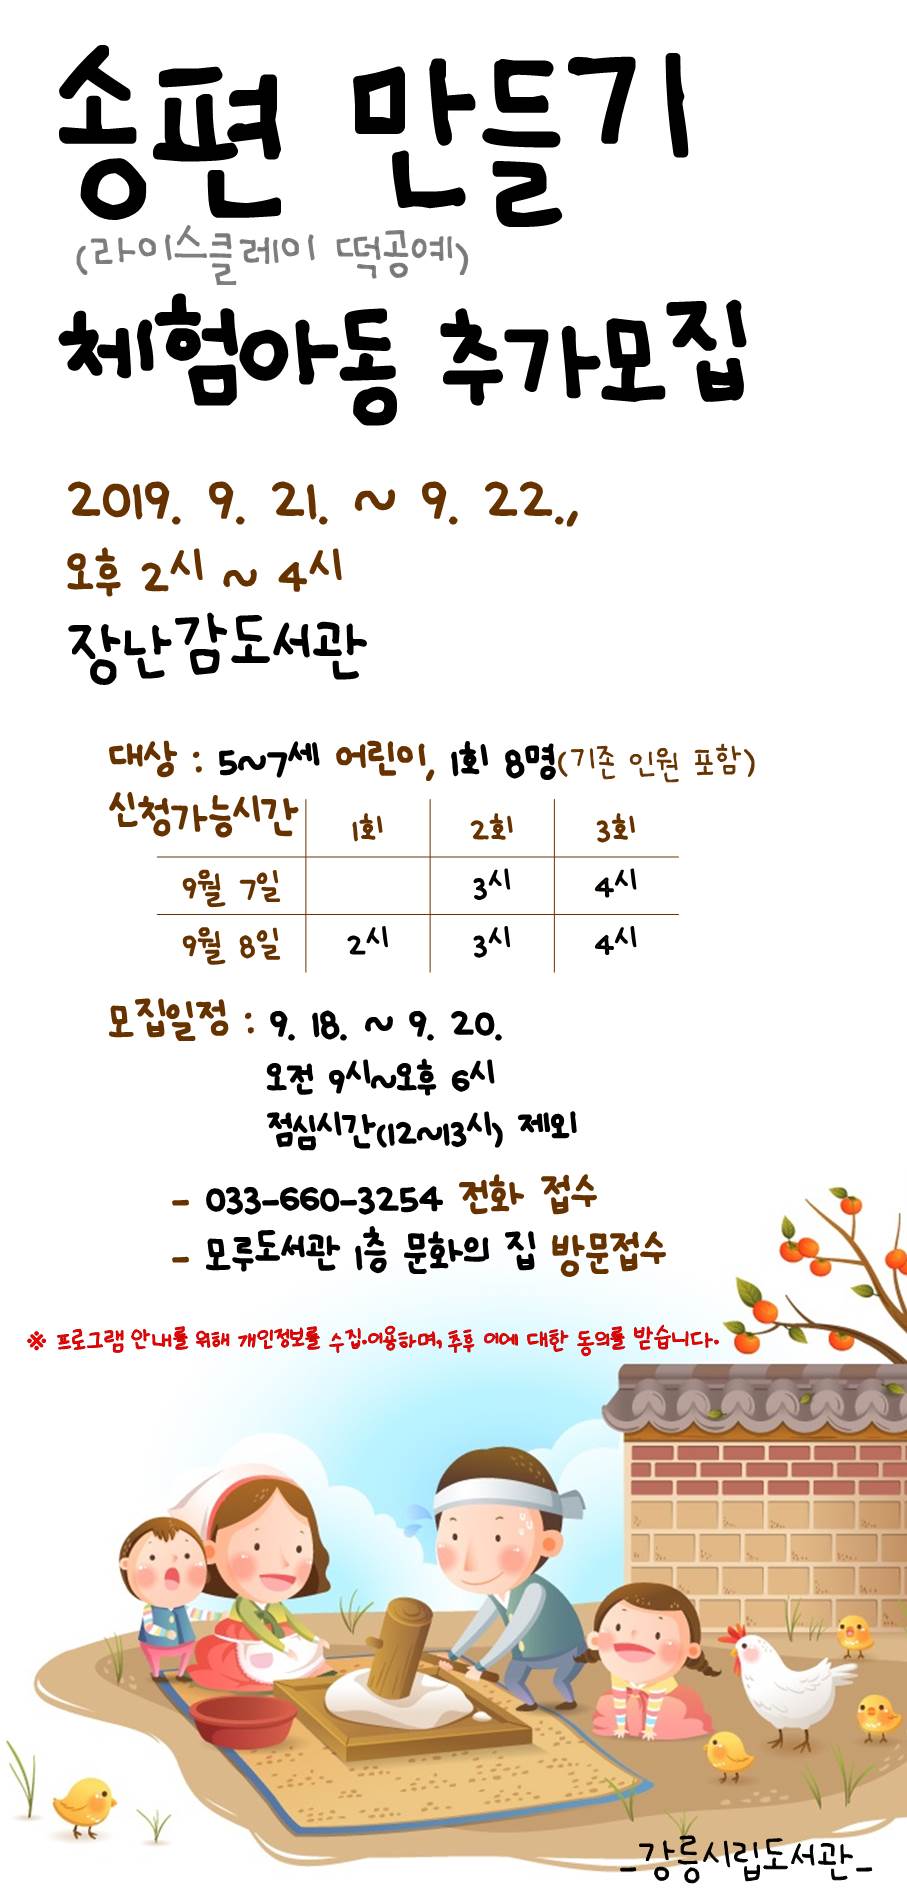 송편 만들기
(라이스클레이 떡공예)
체험아동 추가모집
2019. 9. 21. ~ 9. 22.,
오후 2시 ~ 4시
장난감도서관
대상 : 5~7세 어린이, 1회 8명(기존 인원 포함)
신청가능시간 1회 2회 3회
9월 7일 3시 4시
9월 8일 2시 3시 4시
모집일정 : 9. 18. ~ 9. 20.
오전 9시~오후 6시
점심시간(12~13시) 제외
- 033-660-3254 전화 접수
- 모루도서관 1층 문화의 집 방문접수
※ 프로그램 안내를 위해 개인정보를 수집·이용하며, 추후 이에 대한 동의를 받습니다.
_강릉시립도서관_